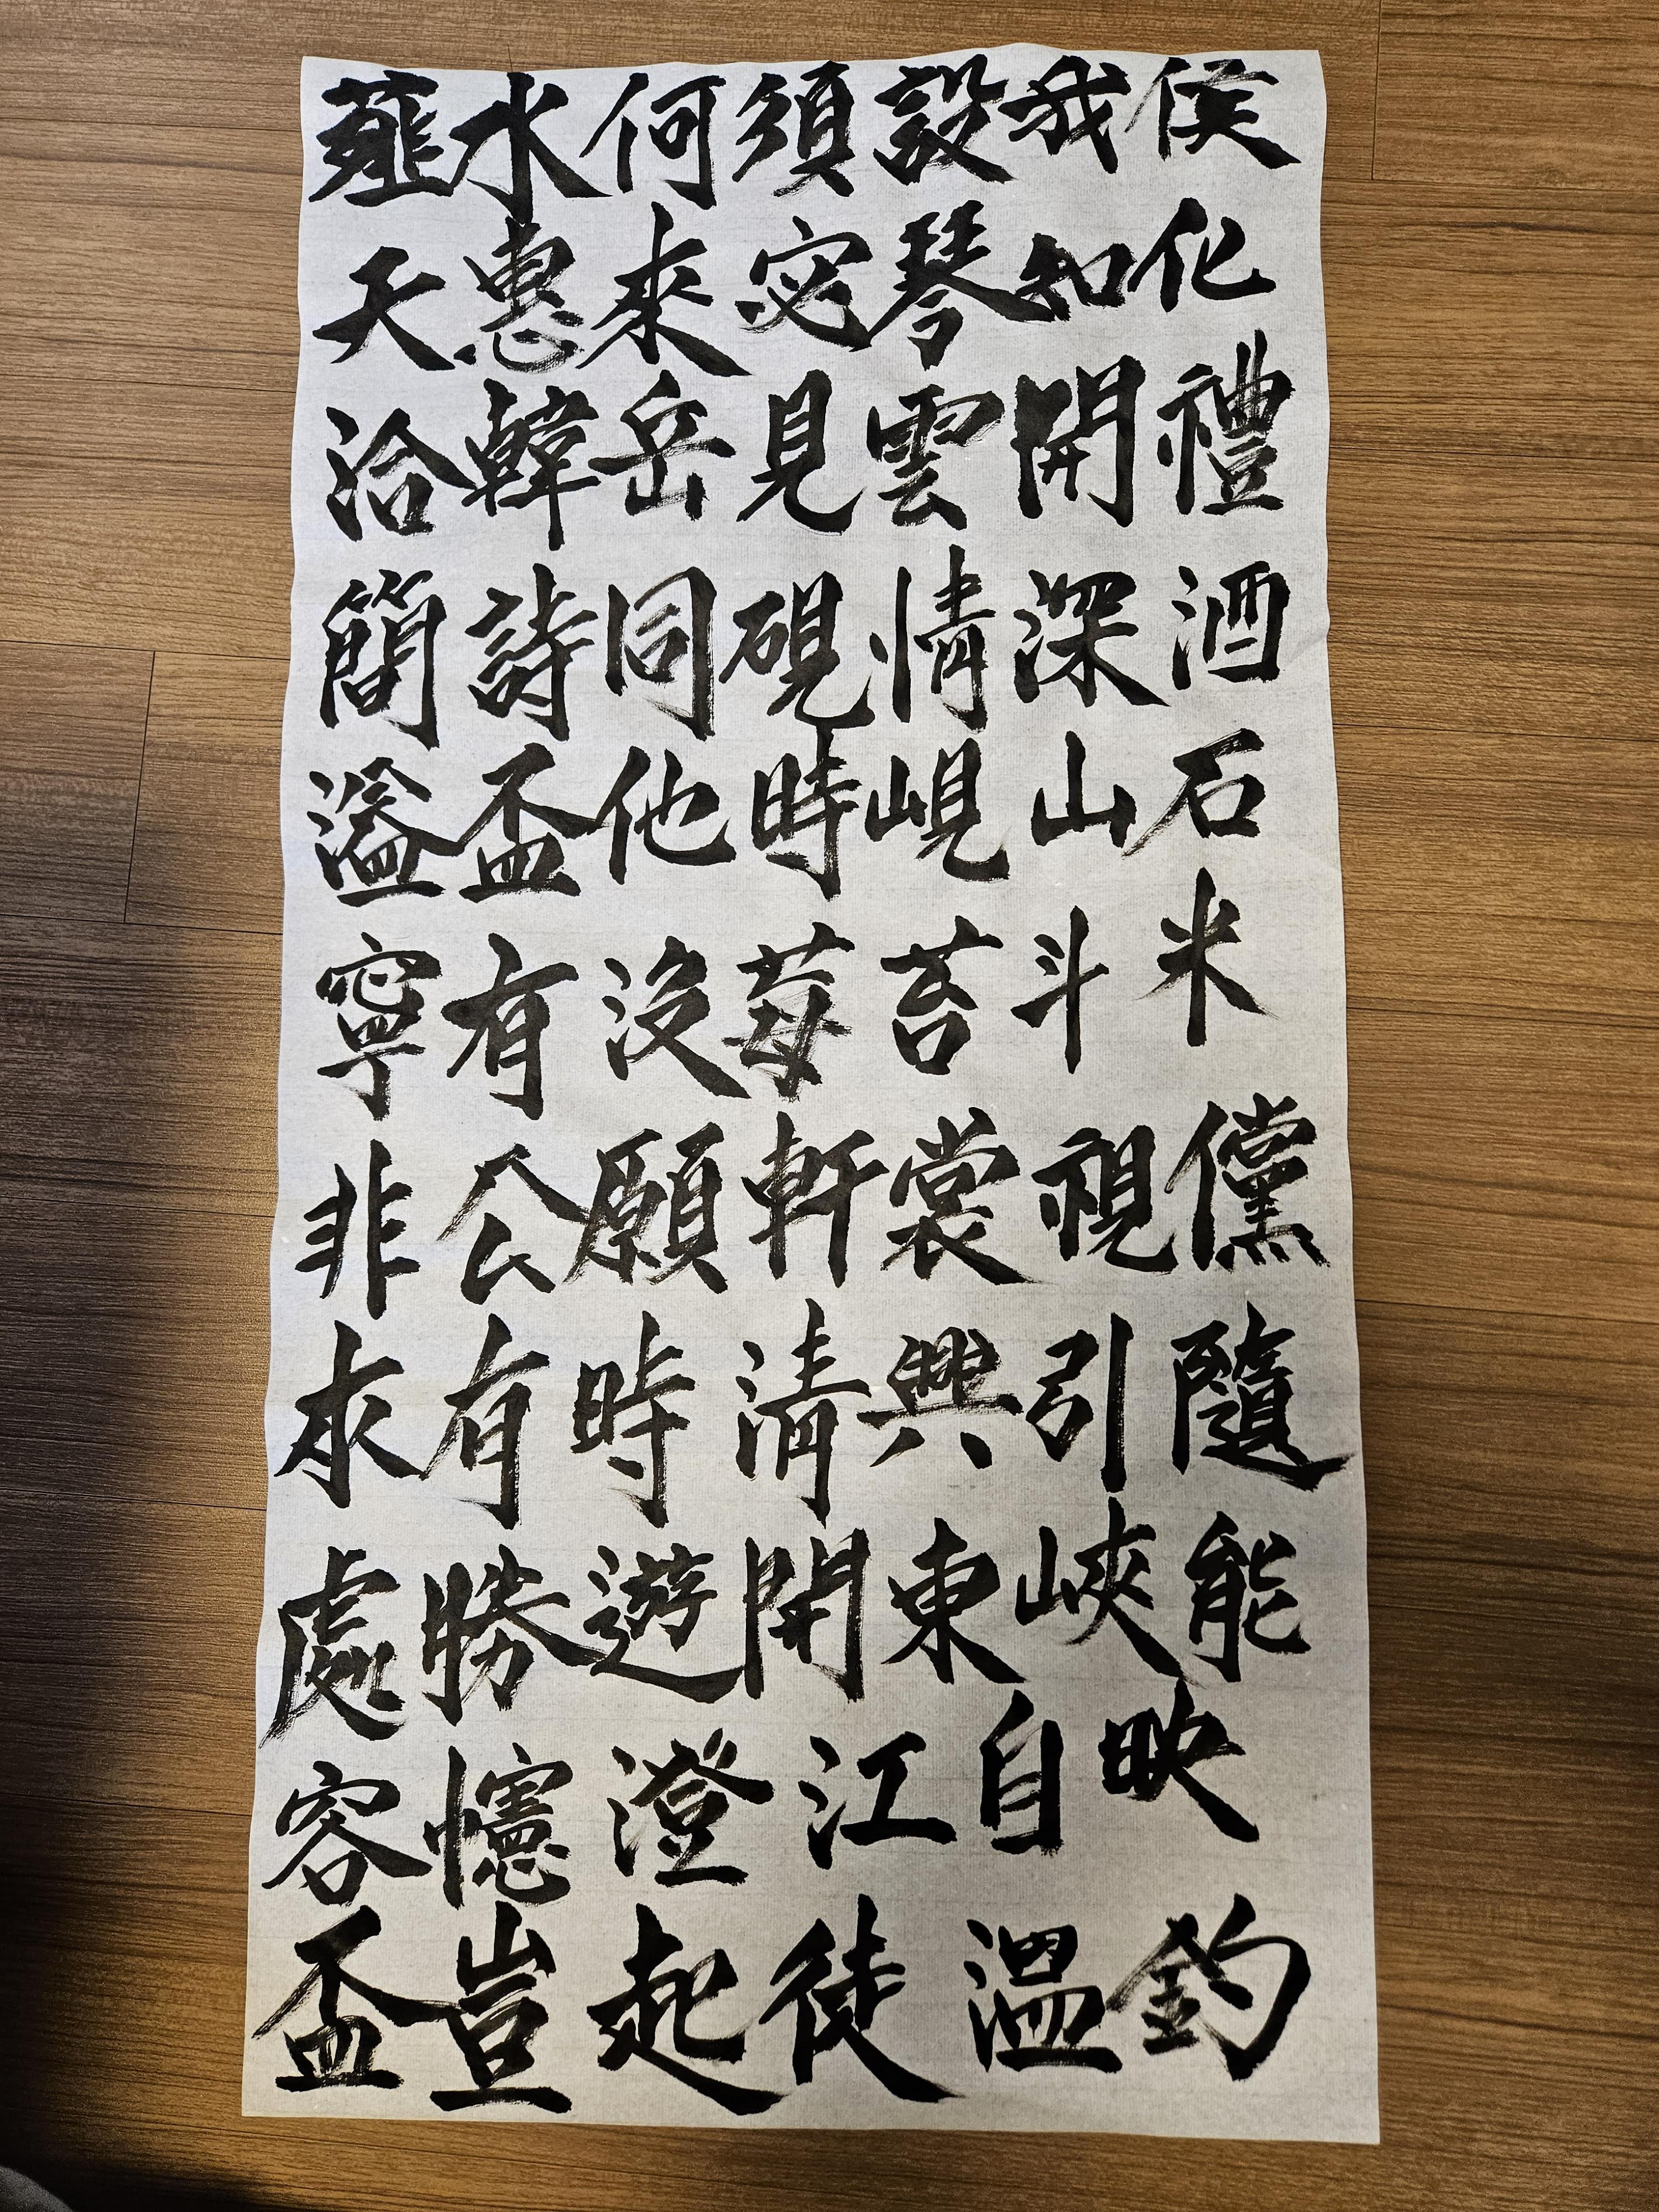 薤水何須設我侯
天惠來宓琴知化
洽韓岳見雲開禮
簡詩同硯情深酒
溢盃他時峴山石
寧有沒莓苔斗米
非公願軒裳視儻
求有時清興引隨
處勝遊開東峽能
容幰澄江自映
盃豈起徒溫釣